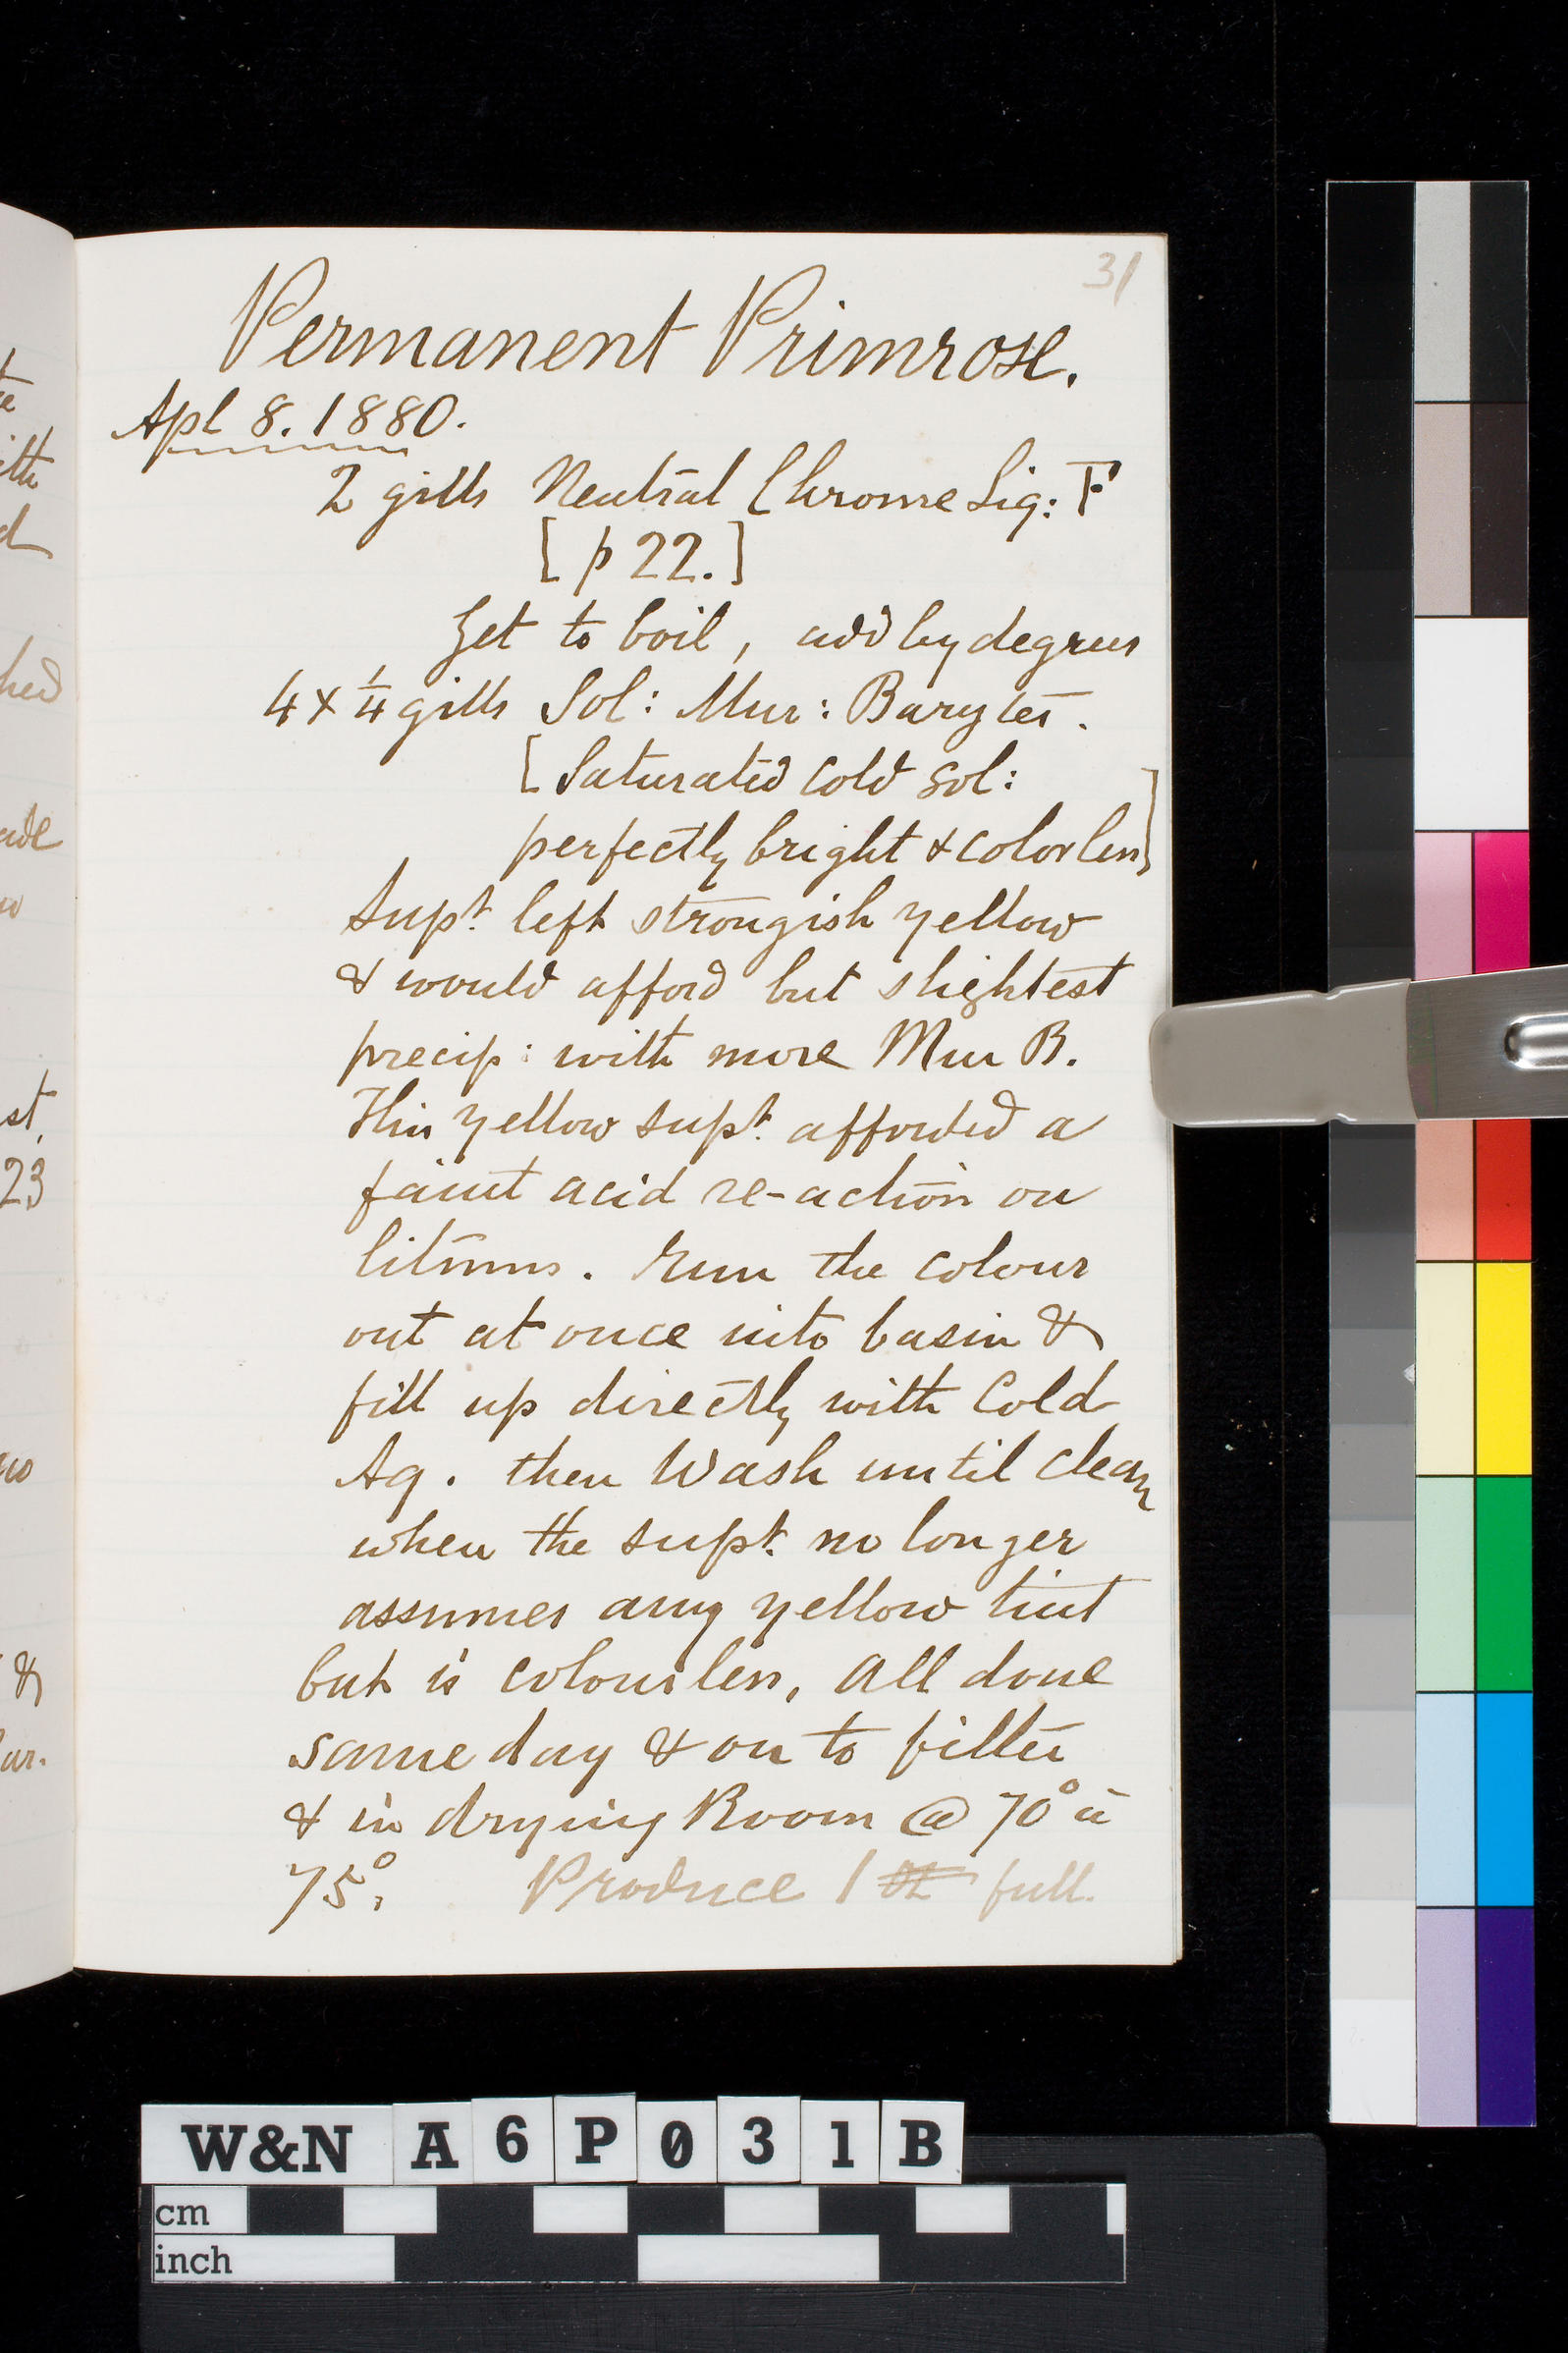 31
Permanent Primrose.
Apl 8. 1880.
2 gills Neutral Chrome Liq: F
[ p 22. ]
Get to boil, add by degrees
4 + 1/4 gills Sol: Mur: Barytes.
[ Saturated cold sol:
perfectly bright & colorless ]
Supt. left strongish yellow
& would afford but slightest
precip: with more Mur B.
This yellow supt. afforded a
faint acid re-action on
litmus. Run the colour
out at once into basin &
fill up directly with Cold
Aq. then Wash until clean
when the supt. no longer
assumes any yellow tint
but is colourless, All done
same day & on to filter
& in drying Room @ 70° a
75°. Produce 1 oz full.
ith
d
hed
st,
23
&
W&N A 6 P 0 3 1 B
cm
inch